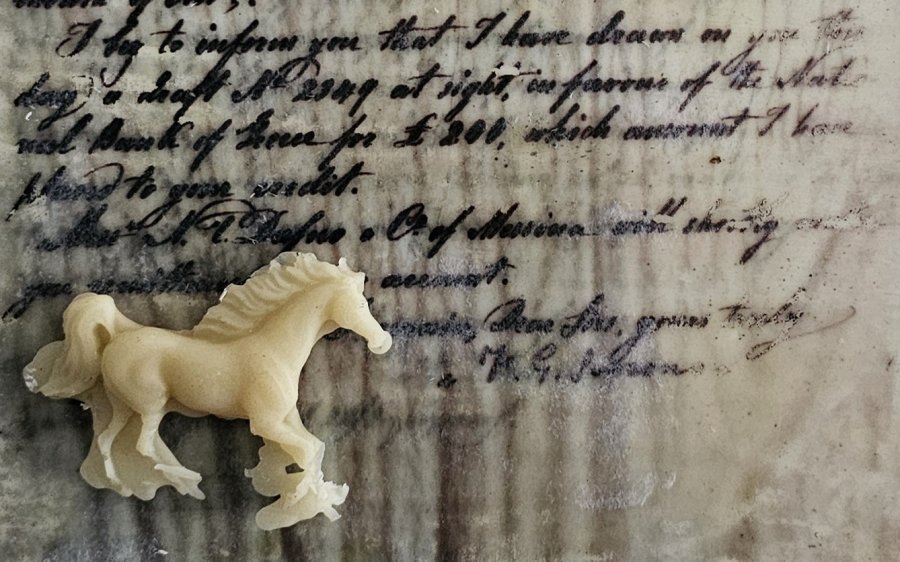 I beg to inform you that I have drawn on you this
day a draft No 2349 at sight, in favour of the Natio
nal Bank of Greece for £ 200, which amount I have
placed to your credit.
Messrs N. T. & Co of Messina will shortly
you account.
remain, Dear Sirs, yours truly